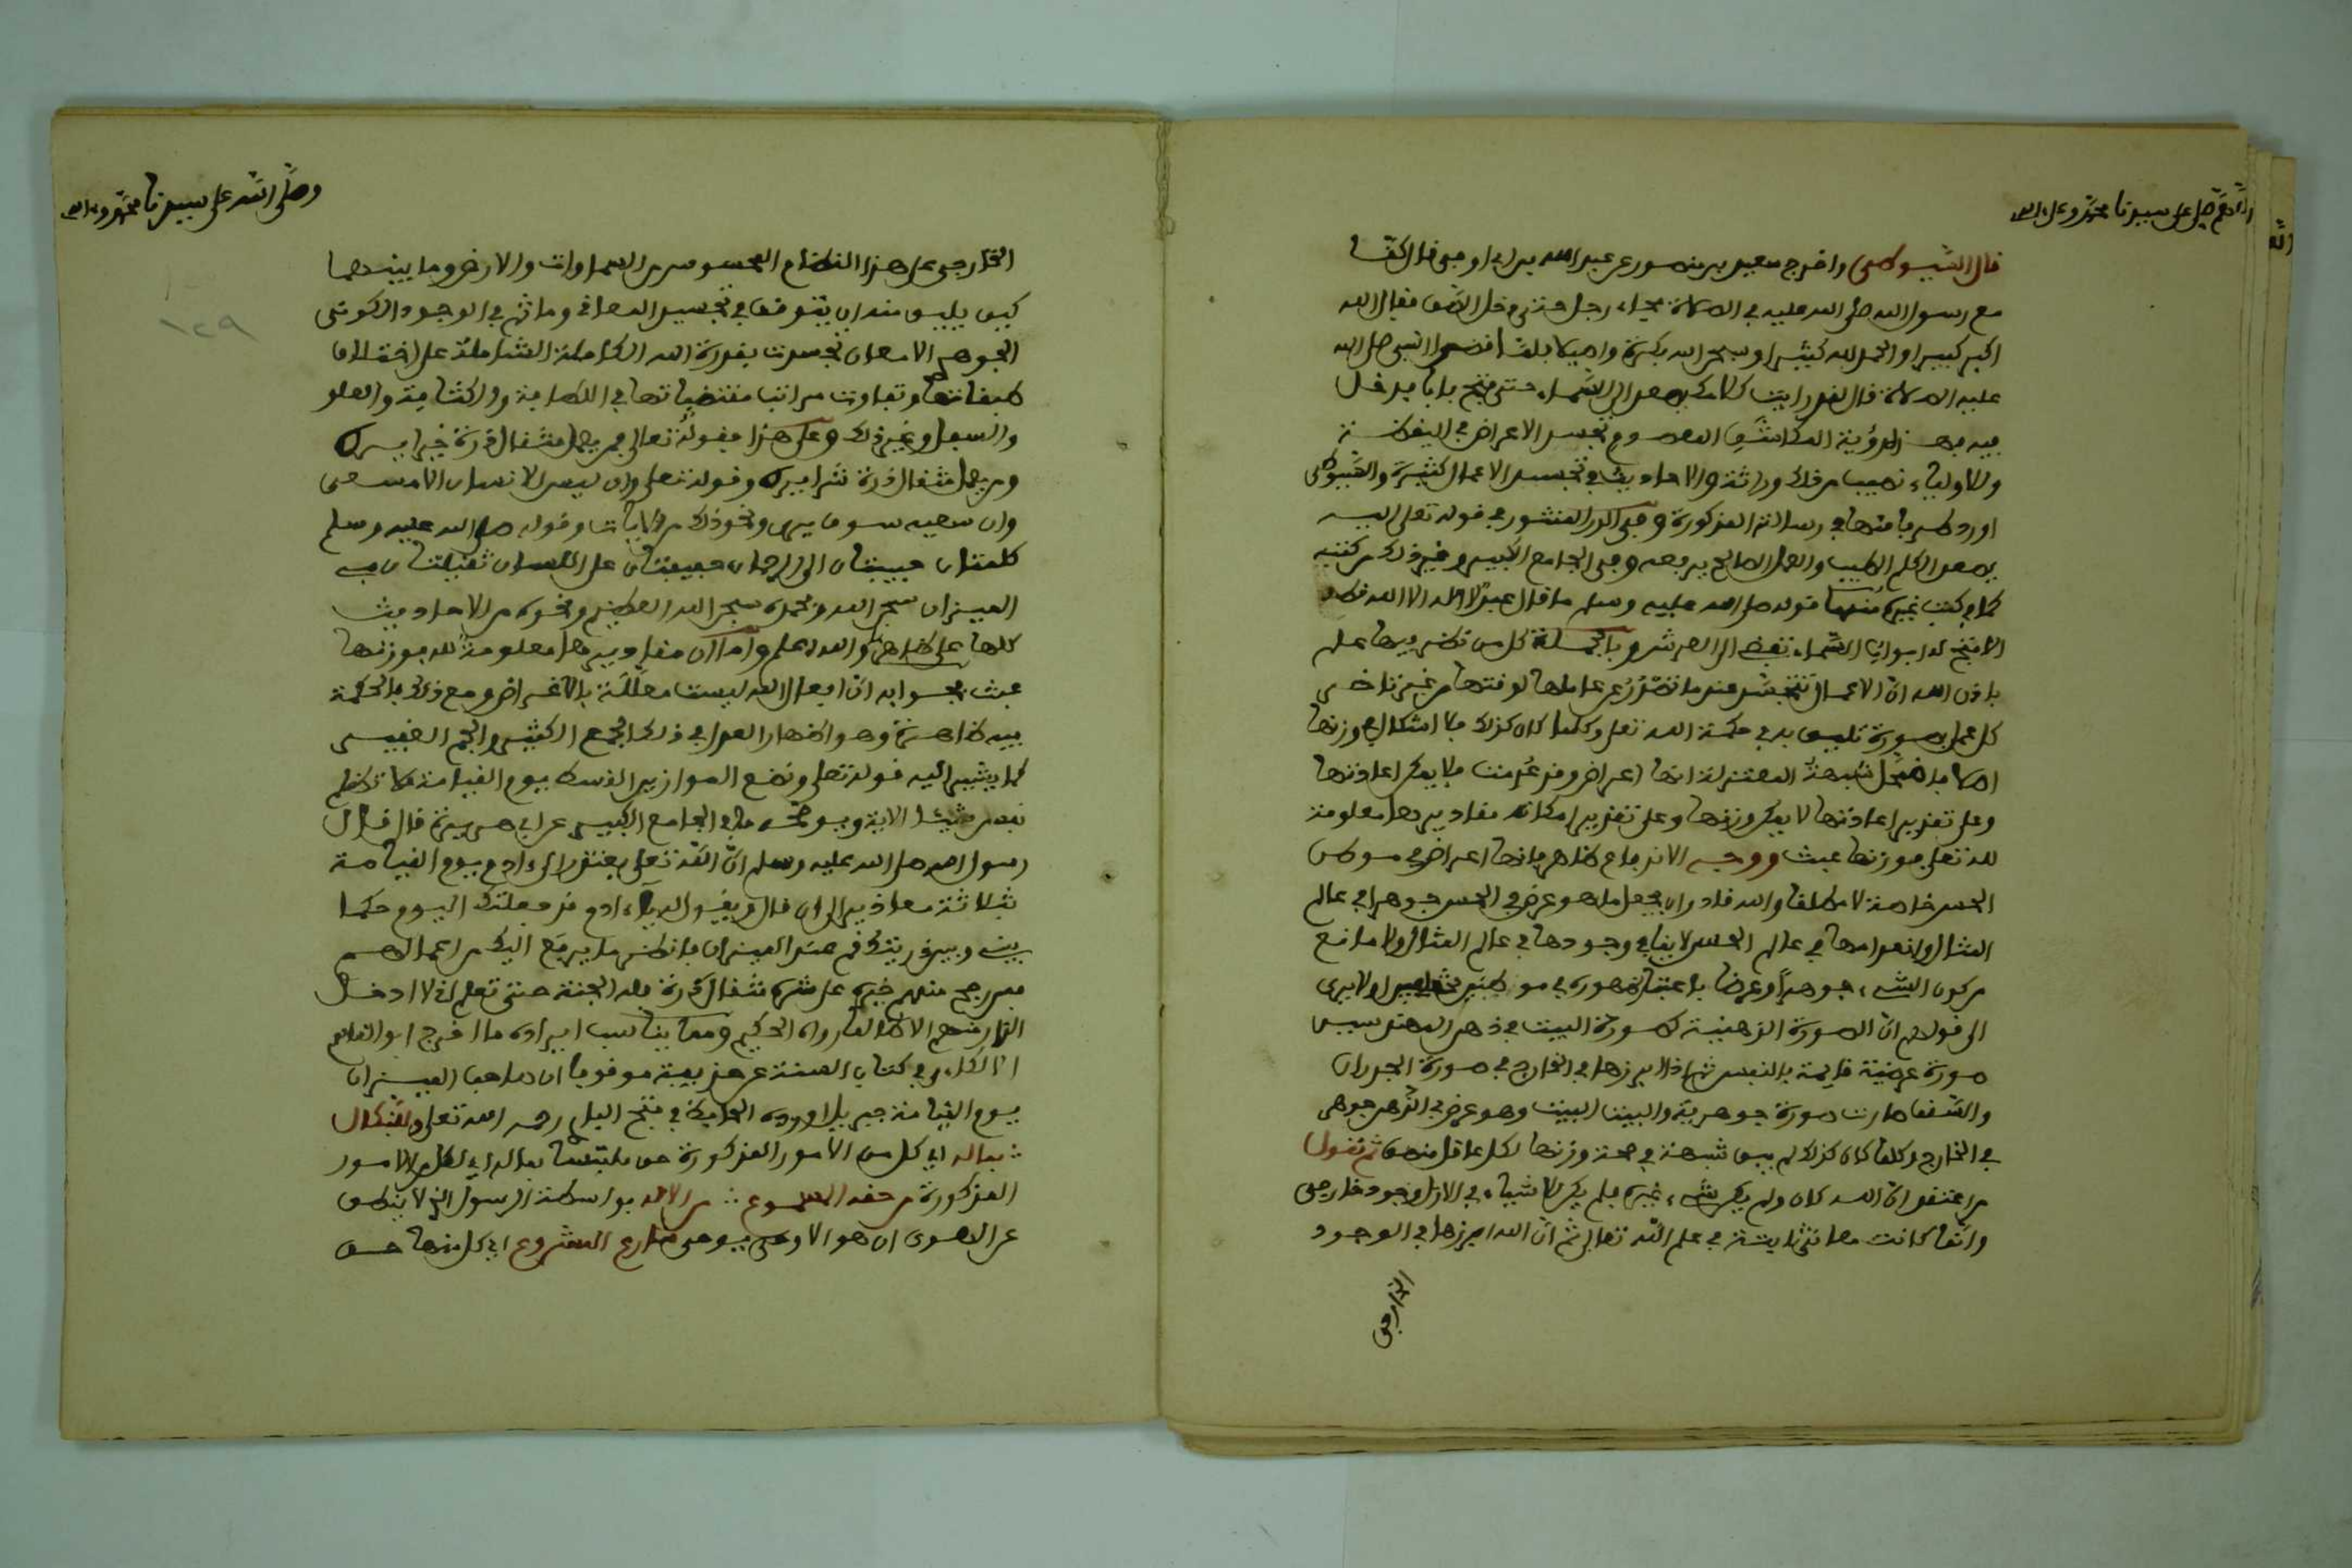 اللهم صل على سيدنا محمد وعلى اله
قال السيوطي واخرج سعيد بن منصور عن عبد الله بن ابي اوفى قال كنا
مع رسول الله صلى الله عليه في الصلاة فجاء رجل حتى دخل الصف فقال الله
اكبر كبيرا والحمد لله كثيرا وسبحن الله بكرة واصيلا فلما النبي صلى الله
عليه الصلاة قال لقد رايت كلامك يصعد الى السماء حتى فتح بابا فدخل
فيه فهذا لرؤية المكاشف المعصوم تجسد الاعراض في اليقظة
وللاولياء نصيب من ذلك وراثة والاحاديث في تجسد الاعمال كثيرة والسيوطي
اورد طرفا منها في رسالته المذكورة وفي الدر المنثور في قوله تعلى اليه
يصعد الكلم الطيب والعمل الصالح يرفعه وفي الجامع الكبير وغير ذلك من كتبه
كما في كتب غيره منها قوله صلى الله عليه وسلم ما قال عبد لا اله الا الله قط
الا فتح له ابواب السماء تفضي الى العرش وبالجملة كل من نظر فيها علم
باذن الله ان الاعمال تتجسد عند ما تصدر عن عاملها لوقتها من غير تراخي
كل عمل بصورة تليق به في حكمة الله تعلى وكلما كان كذلك فلا اشكال في وزنها
اصلا فاضمحل شبهة المعتزلة انها اعراض وقد عدمت فلا يمكن اعادتها
وعلى تقدير اعادتها لا يمكن وزنها وعلى تقدير امكانه مقاديرها معلومة
لله تعلى فوزنها عبث ووجه الاندفاع ظاهر فانها اعراض في موطن
الحس خاصة لا مطلقا والله قادر ان يجعل ما هو عرض في الحس جوهرا في عالم
المثال وانعدامها في عالم الحس لا ينافي وجودها في عالم المثال ولا مانع
من كون الشيء جوهرا وعرضا باعتبار ظهوره في موطنين الا يرى
الى قولهم ان الصورة الذهنية كصورة البيت في ذهن المهندس
صورة عرضية قايمة بالنفس ثم اذا ابرزها في الخارج في صورة الجدران
والسقف صارت صورة جوهرية والبيت البيت وهو عرض في الذهن جوهر
في الخارج وكلما كان كذلك لم يبق شبهة في صحة وزنها لكل عاقل منصف ثم نقول
من اعتقد ان الله كان ولم يكن شيء غيره فلم يكن للاشياء في الازل وجود خارجي
وانما كانت معاني ثابتة في علم الله تعالى ثم ان الله ابرزها في الوجود
الخارجي
وصلى الله على سيدنا محمد وءاله
الخارجي على هذا النظام المحسوس من السماوات والارض وما بينهما
كيف يليق منه ان يتوقف في تجسد المعاني وما ثم في الوجود الكوني
الجوهر الا معان تجسدت بقدرة الله الكاملة الشاملة على اختلاف
طبقاتها وتفاوت مراتب مقتضياتها في اللطافة والكثافة والعلو
والسفل وغير ذلك وعلى هذا فقوله تعالى فمن يعمل مثقال ذرة خيرا يره
ومن يعمل مثقال ذرة شرا يره وقوله تعلى وان ليس للانسان الا ما سعى
وان سعيه سوف يرى ونحو ذلك من الايات وقوله صلى الله عليه وسلم
كلمتان حبيبتان الى الرحمان خفيفتان على اللسان ثقيلتان في
الميزان سبحن الله وبحمده سبحن الله العظيم ونحوه من الاحاديث
كلها على ظاهره والله اعلم واما ان مقاديرها معلومة لله فوزنها
عبث فجوابه ان افعال الله ليست معللة بالاغراض ومع ذلك فالحكمة
فيه ظاهرة وهو اظهار العدل في ذلك الجمع الكثير والجم الغفير
كما يشير اليه قوله تعلى ونضع الموازين القسط ليوم القيامة فلا تظلم
نفس شيئا الاية ويوضحه ما في الجامع الكبير عن ابي هريرة قال قال
رسول الله صلى الله عليه وسلم ان الله تعلى يعتذر الى ءادم يوم القيامة
بثلاثة معاذير الى ان قال ويقول يا ءادم قد جعلتك اليوم حكما
بيني وبين ذريتك قم عند الميزان فانظر ما يرفع اليك من اعمالهم
فمن رجح منهم خيره على شره مثقال ذرة فله الجنة حتى تعلم اني لا ادخل
النار منهم الا ظالما رواه الحكيم ومما يناسب ايراده ما اخرج ابو القاسم
اللالكاءي في كتاب السنة عن حذيفة موقوفا ان صاحب الميزان
يوم القيامة جبريل اورده الحافظ في فتح الباري رحمه الله تعلى
فما له اي كل من الامور المذكورة حق ملتبسا بماله اي لكل من الامور
المذكورة من حقه المسموع من الاحد بواسطة الرسول الذي لا ينطق
عن الهوى ان هو الا وحي يوحى المشروع اي كل منها حق
١٢٩